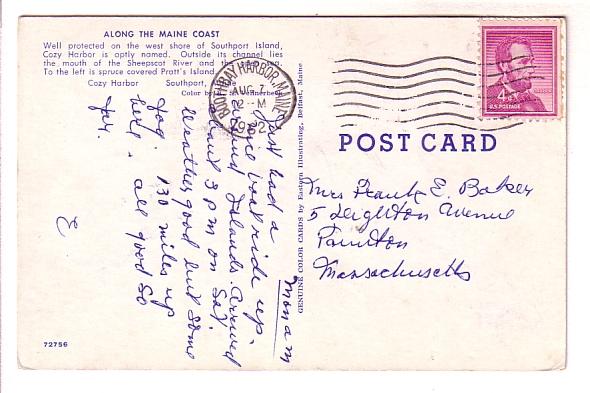 ALONG THE MAINE COAST
Well protected on the west shore of Southport Island,
Cozy Harbor is aptly named. Outside its channel lies
the mouth of the Sheepscot River and the
To the left is spruce covered Pratt's Island.
Cozy Harbor Southport,
Color by
BOOTHBAY HARBOR, MAINE
AUG 7
2 - M
1962
4¢
U.S. POSTAGE
POST CARD
GENUINE COLOR CARDS by Eastern Illustrating, Belfast, Maine
Mrs Frank E. Baker
5 Leighton Avenue
Taunton
Massachusetts
Mon am
Just had a
nice boat ride up
around Islands. Arrived
about 3 pm on Sat.
Weather good but some
fog. 130 miles up
here. all good so
far.
E
72756